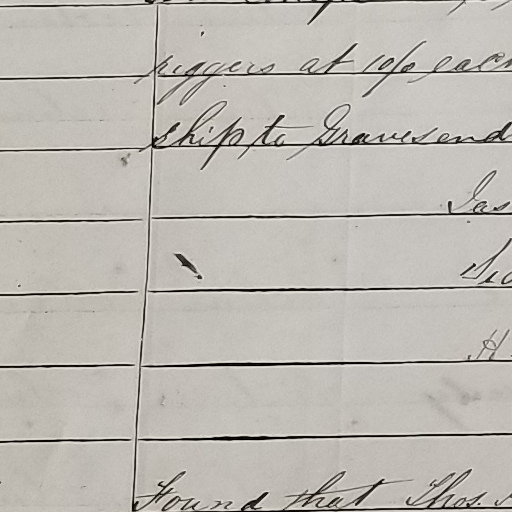 riggers at 10/0 each
ship to Gravesend
Jas
H
Found that Thos.